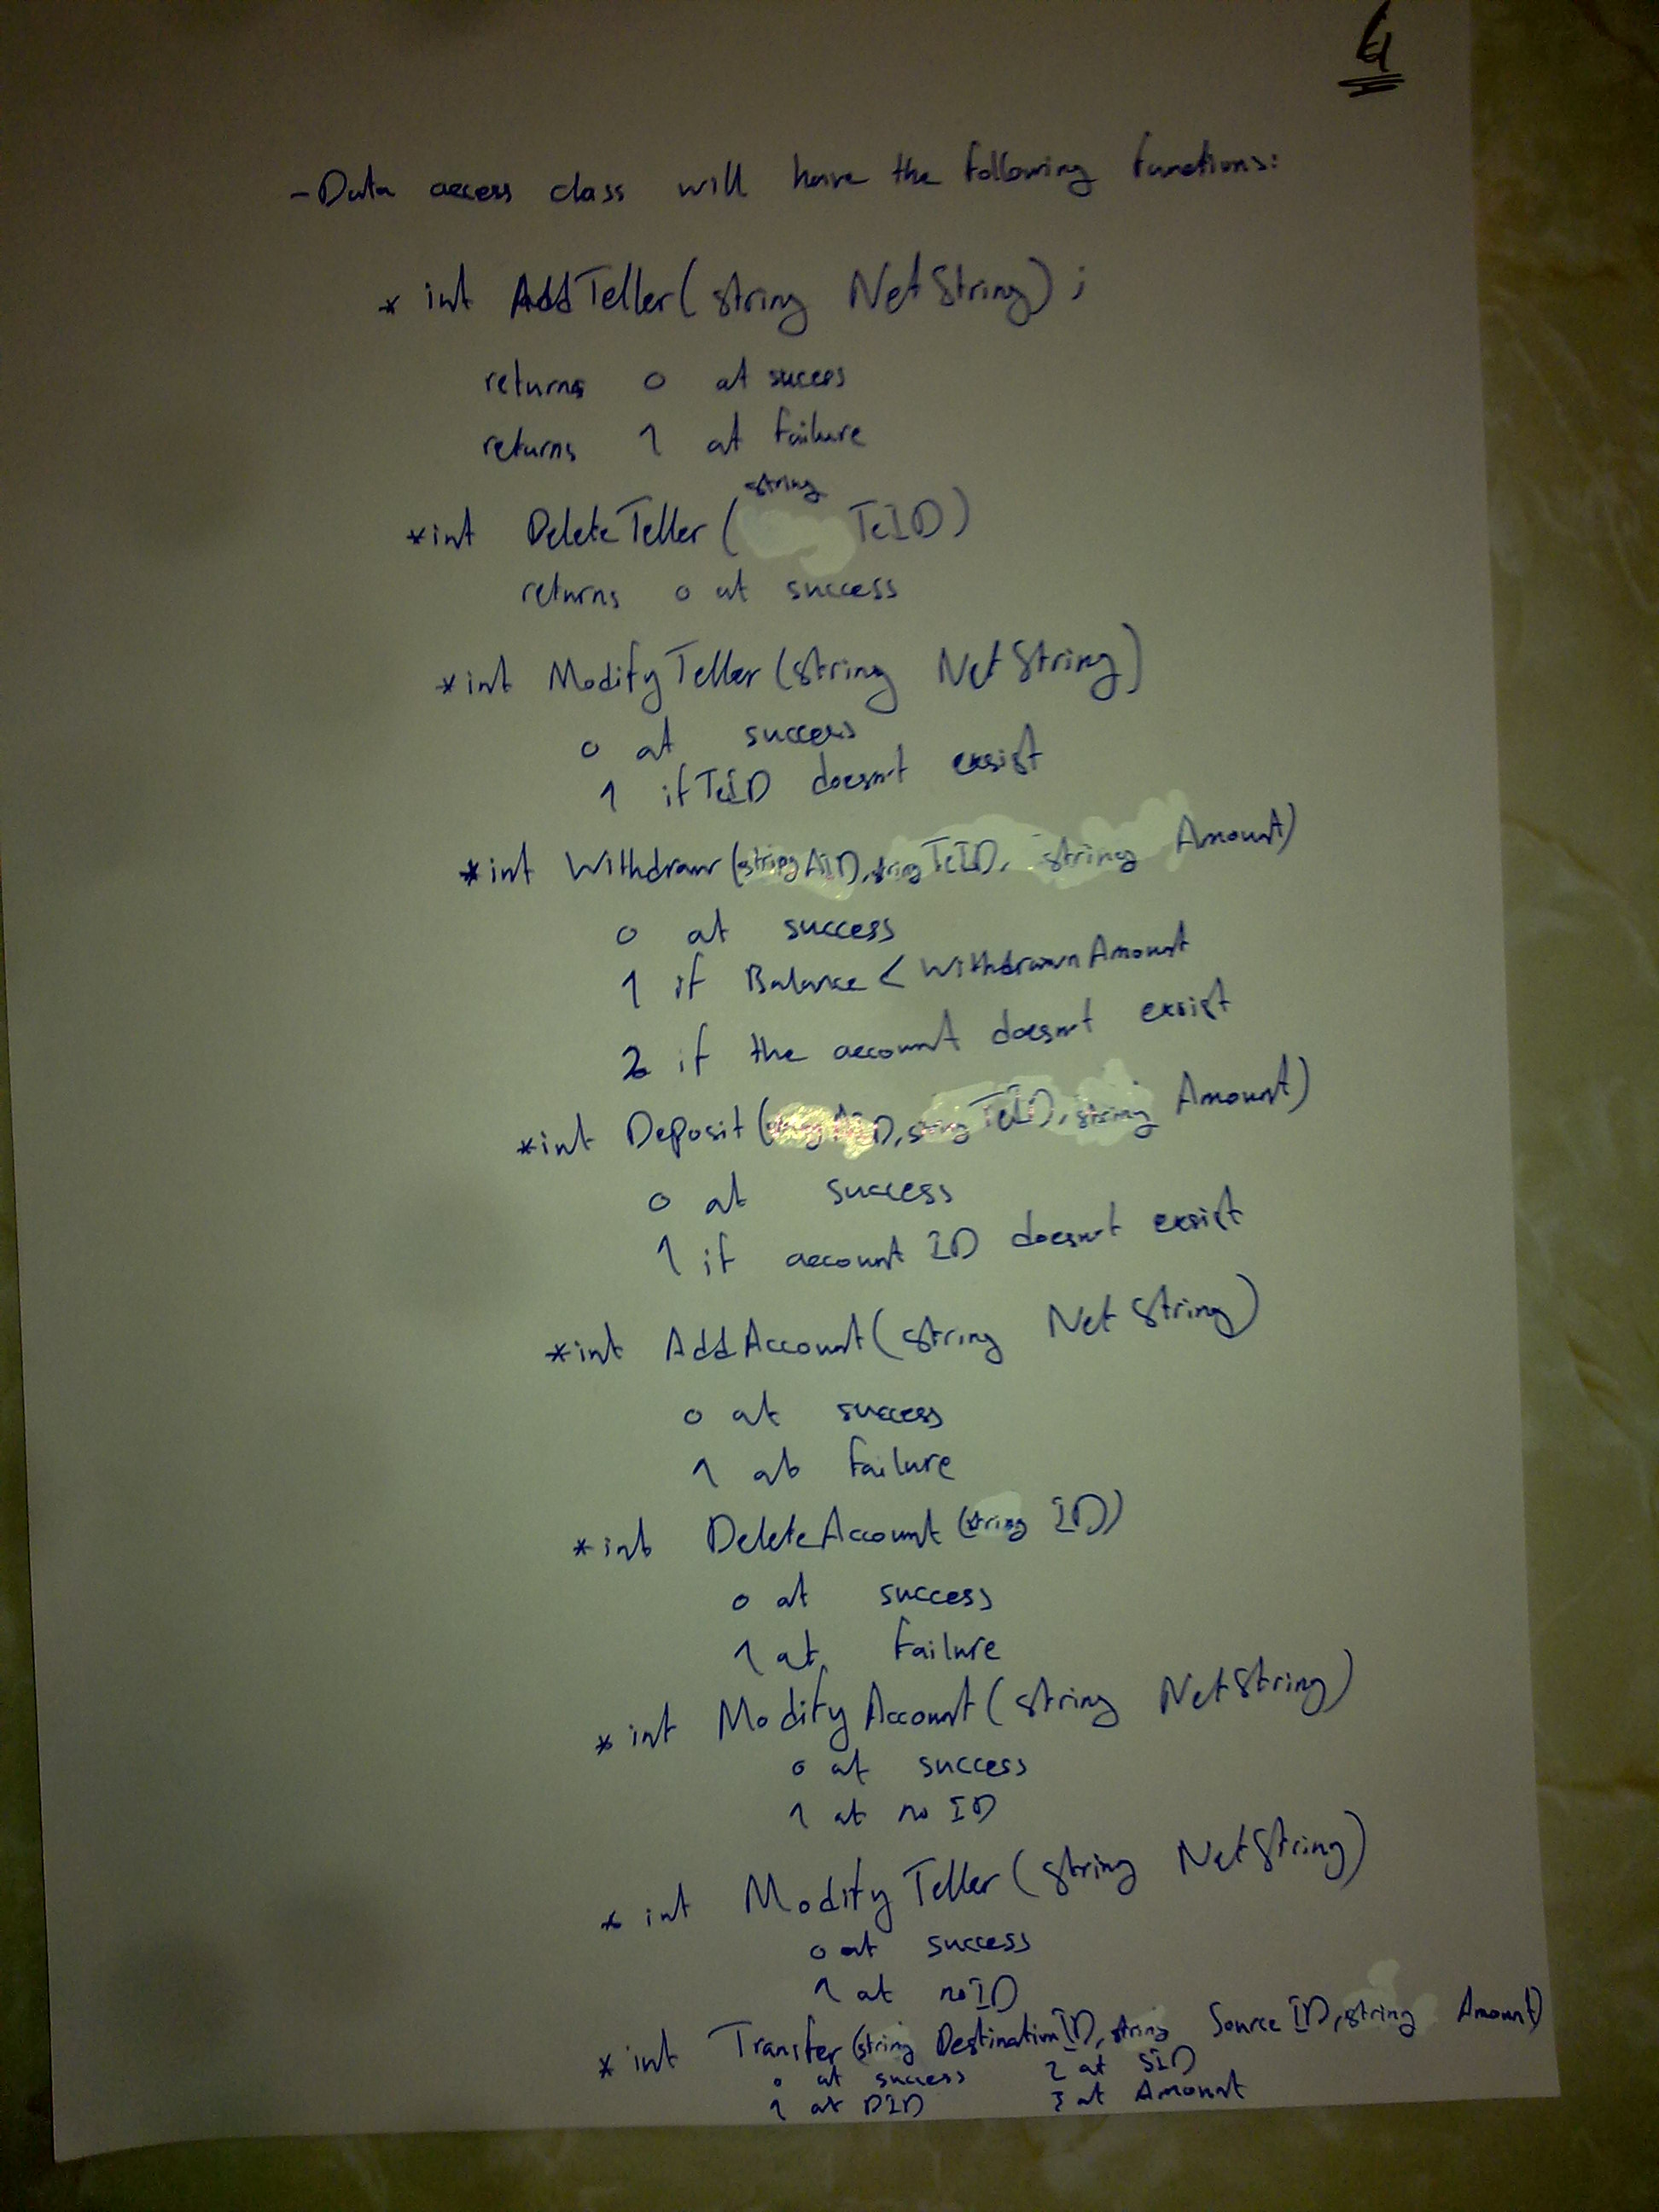 - Data access class will have the following functions:
* int AddTeller(string NetString);
returns 0 at success
returns 1 at failure
string
*int DeleteTeller( TeID)
returns 0 at success
*int ModifyTeller(string NetString)
0 at success
1 if TeID doesn't exsist
*int Withdraw(string AID, string TeID, string Amount)
0 at success
1 if Balance < WithdrawnAmount
2 if the account doesn't exsist
*int Deposit(string AID, string TeID, string Amount)
0 at success
1 if account ID doesn't exsist
*int AddAccount(string NetString)
0 at success
1 at failure
*int DeleteAccount(string ID)
0 at success
1 at failure
* int ModifyAccount(string NetString)
0 at success
1 at no ID
* int ModifyTeller(string NetString)
0 at success
1 at no ID
* int Transfer(string DestinationID, string SourceID, string Amount)
0 at success 2 at SID
1 at DID 3 at Amount